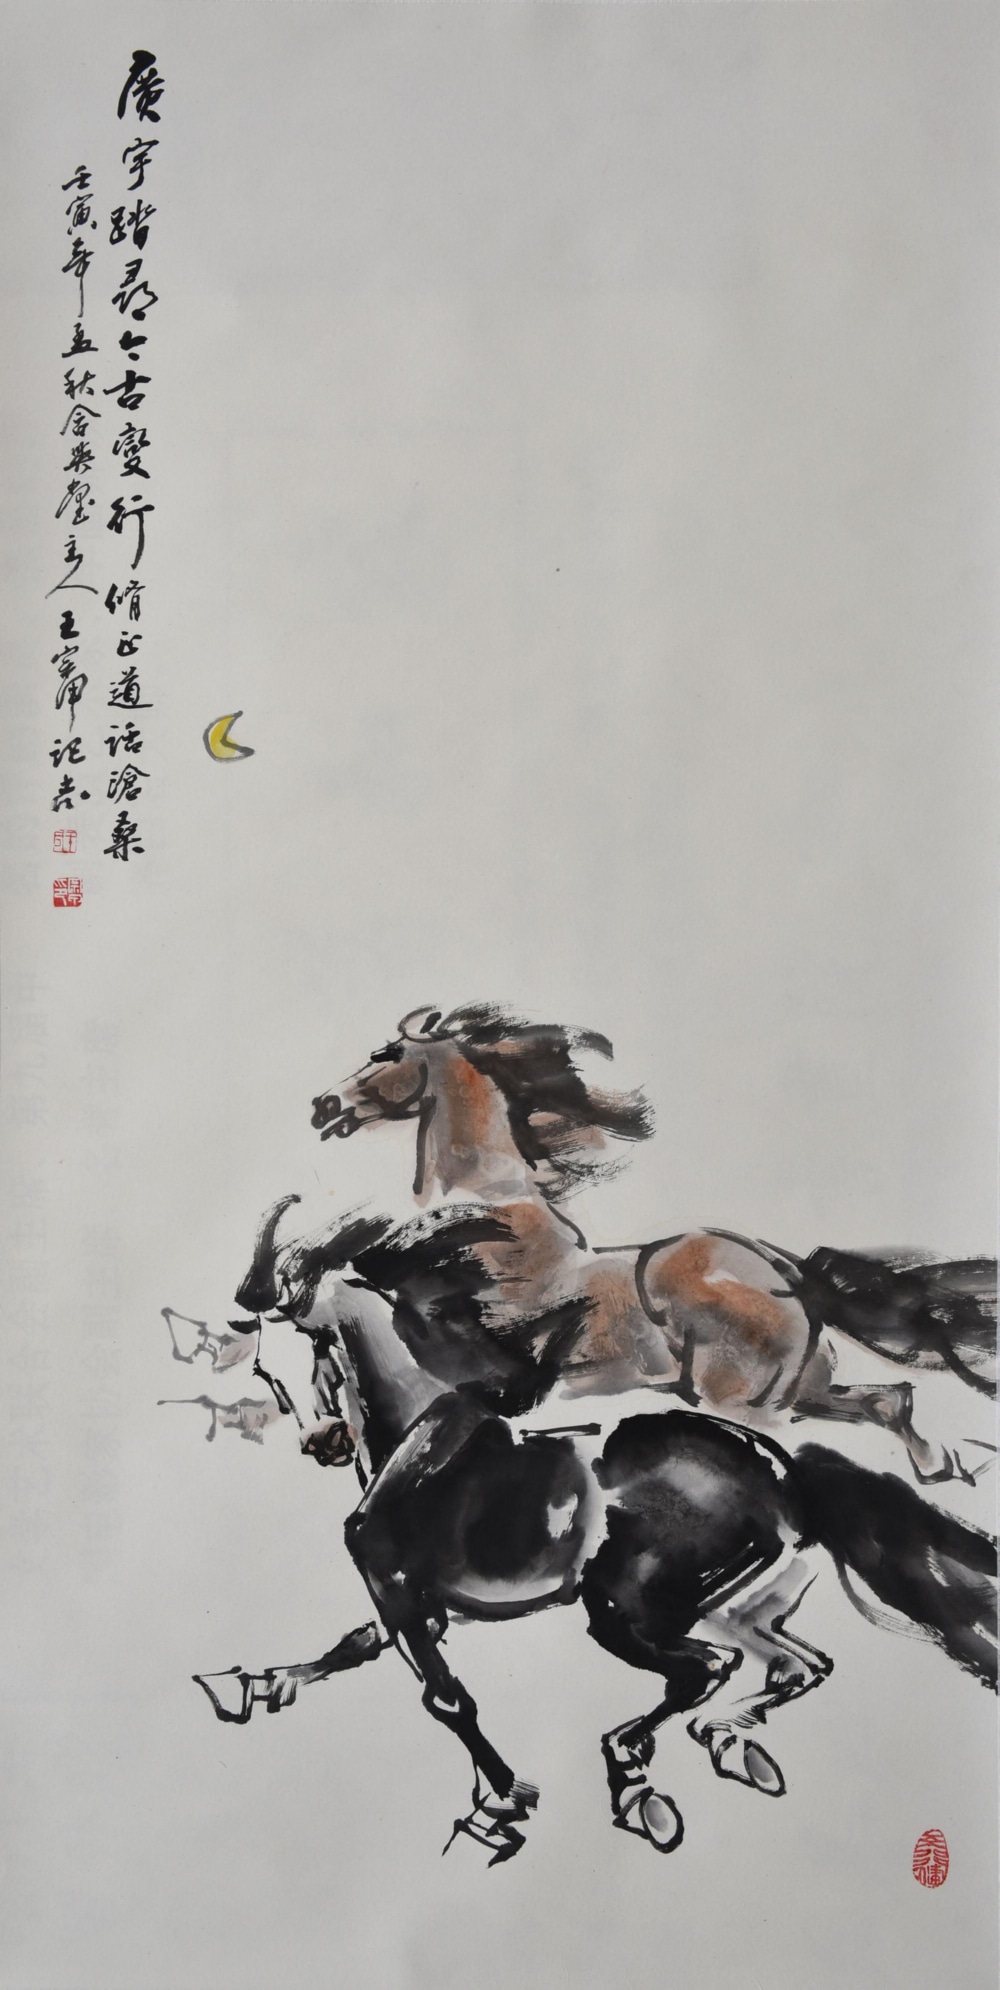 廣宇踏尋今古變行脩正道話滄桑
壬寅年孟秋含英堂主人王寅甲記